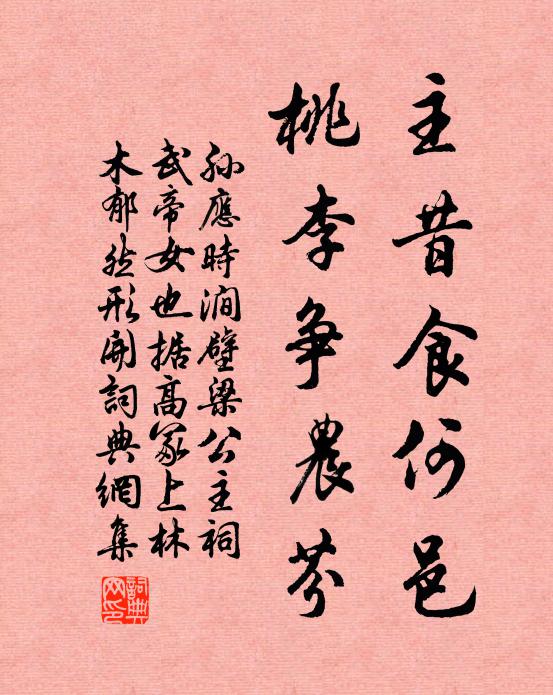 主昔食何邑
桃李争農芬
孫應時澗壁梁公主祠
武帝女也据高冢上林
木郁然形開詞典網集
詞典網印